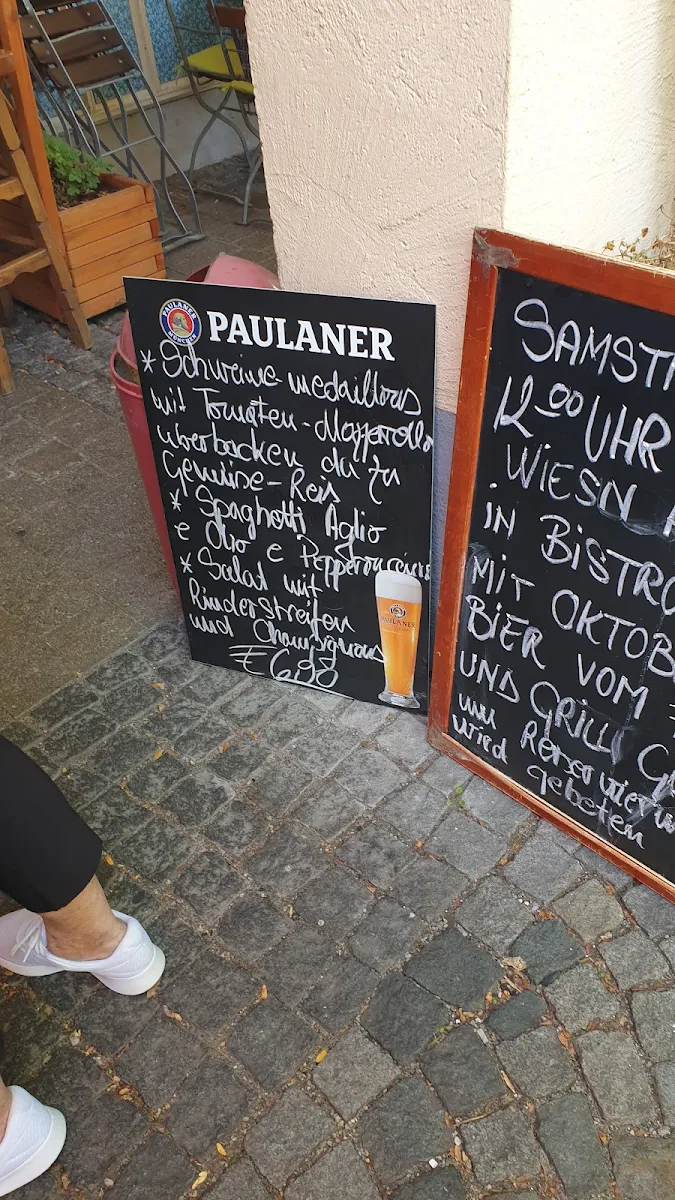 PAULANER
MÜNCHEN
PAULANER
* Schweine-medaillons
mit Tomaten-Mozzarella
überbacken dazu
Gemüse-Reis
* Spaghetti Aglio
e Olio e Pepperoncini
* Salat mit
Rinderstreifen
und Champignons
€ 6,90
PAULANER
SAMST
12.00 UHR
WIESN
IN BISTRO
MIT OKTOB
BIER VOM
UND GRILL
um Reservierun
wird gebeten